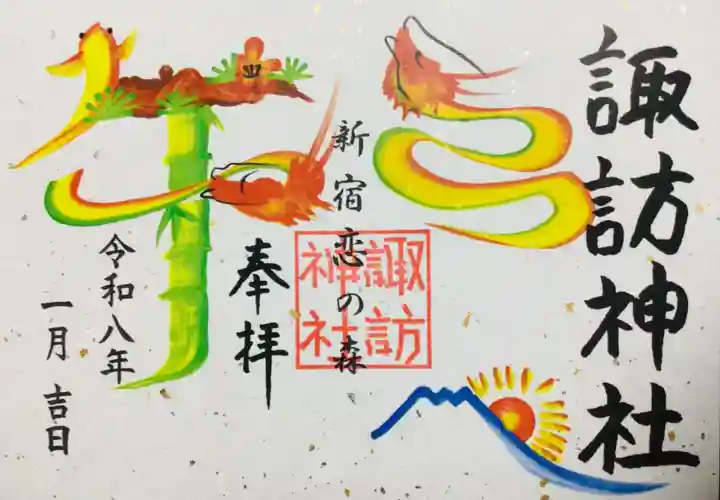 諏訪神社
新宿恋の森
諏訪
神社
奉拝
令和八年
一月吉日